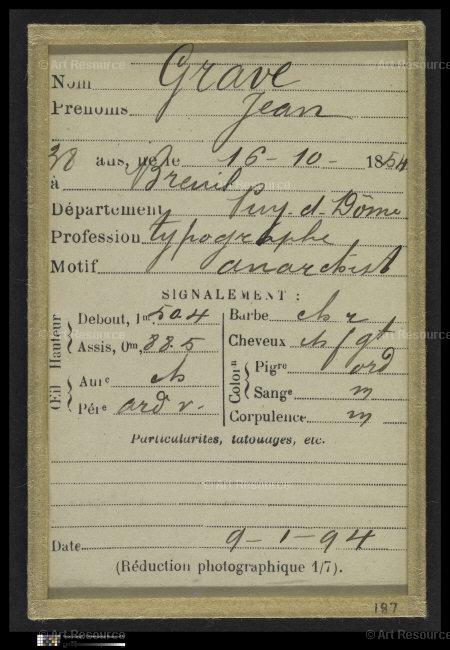 Nom Grave
Prénoms Jean
38 ans, né le 16-10- 1854
à Breuil
Département Puy-d-Dôme
Profession typographe
Motif anarchist
SIGNALEMENT :
Hauteur
Debout, 1m 504
Assis, 0m, 885
Œil
Aure ch
Pére ord v.
Barbe ch r
Cheveux ch f gt
Colorn
Pigre ord
Sange m
Corpulence m
Particularités, tatouages, etc.
Date 9-1-94
(Réduction photographique 1/7).
187
© Art Resource